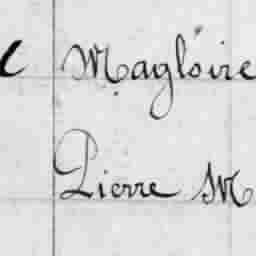 Magloire
Pierre M